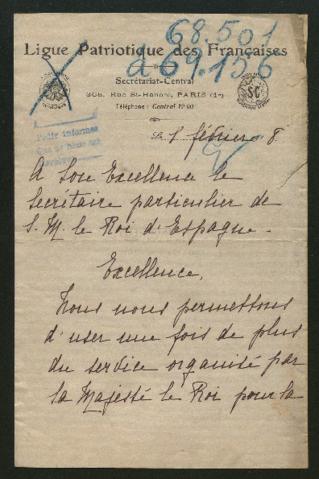 68.501
Ligue Patriotique des Françaises
à 69.156
Secrétariat-Central
368, Rue St-Honoré, PARIS (1er)
Téléphone : Central
SC
Pedir informes
Le 1 février 8
A Son Excellence le
Secrétaire particulier de
S. M. le Roi d'Espagne.
Excellence,
Nous nous permettons
d'user une fois de plus
du service organisé par
Sa Majesté le Roi pour la